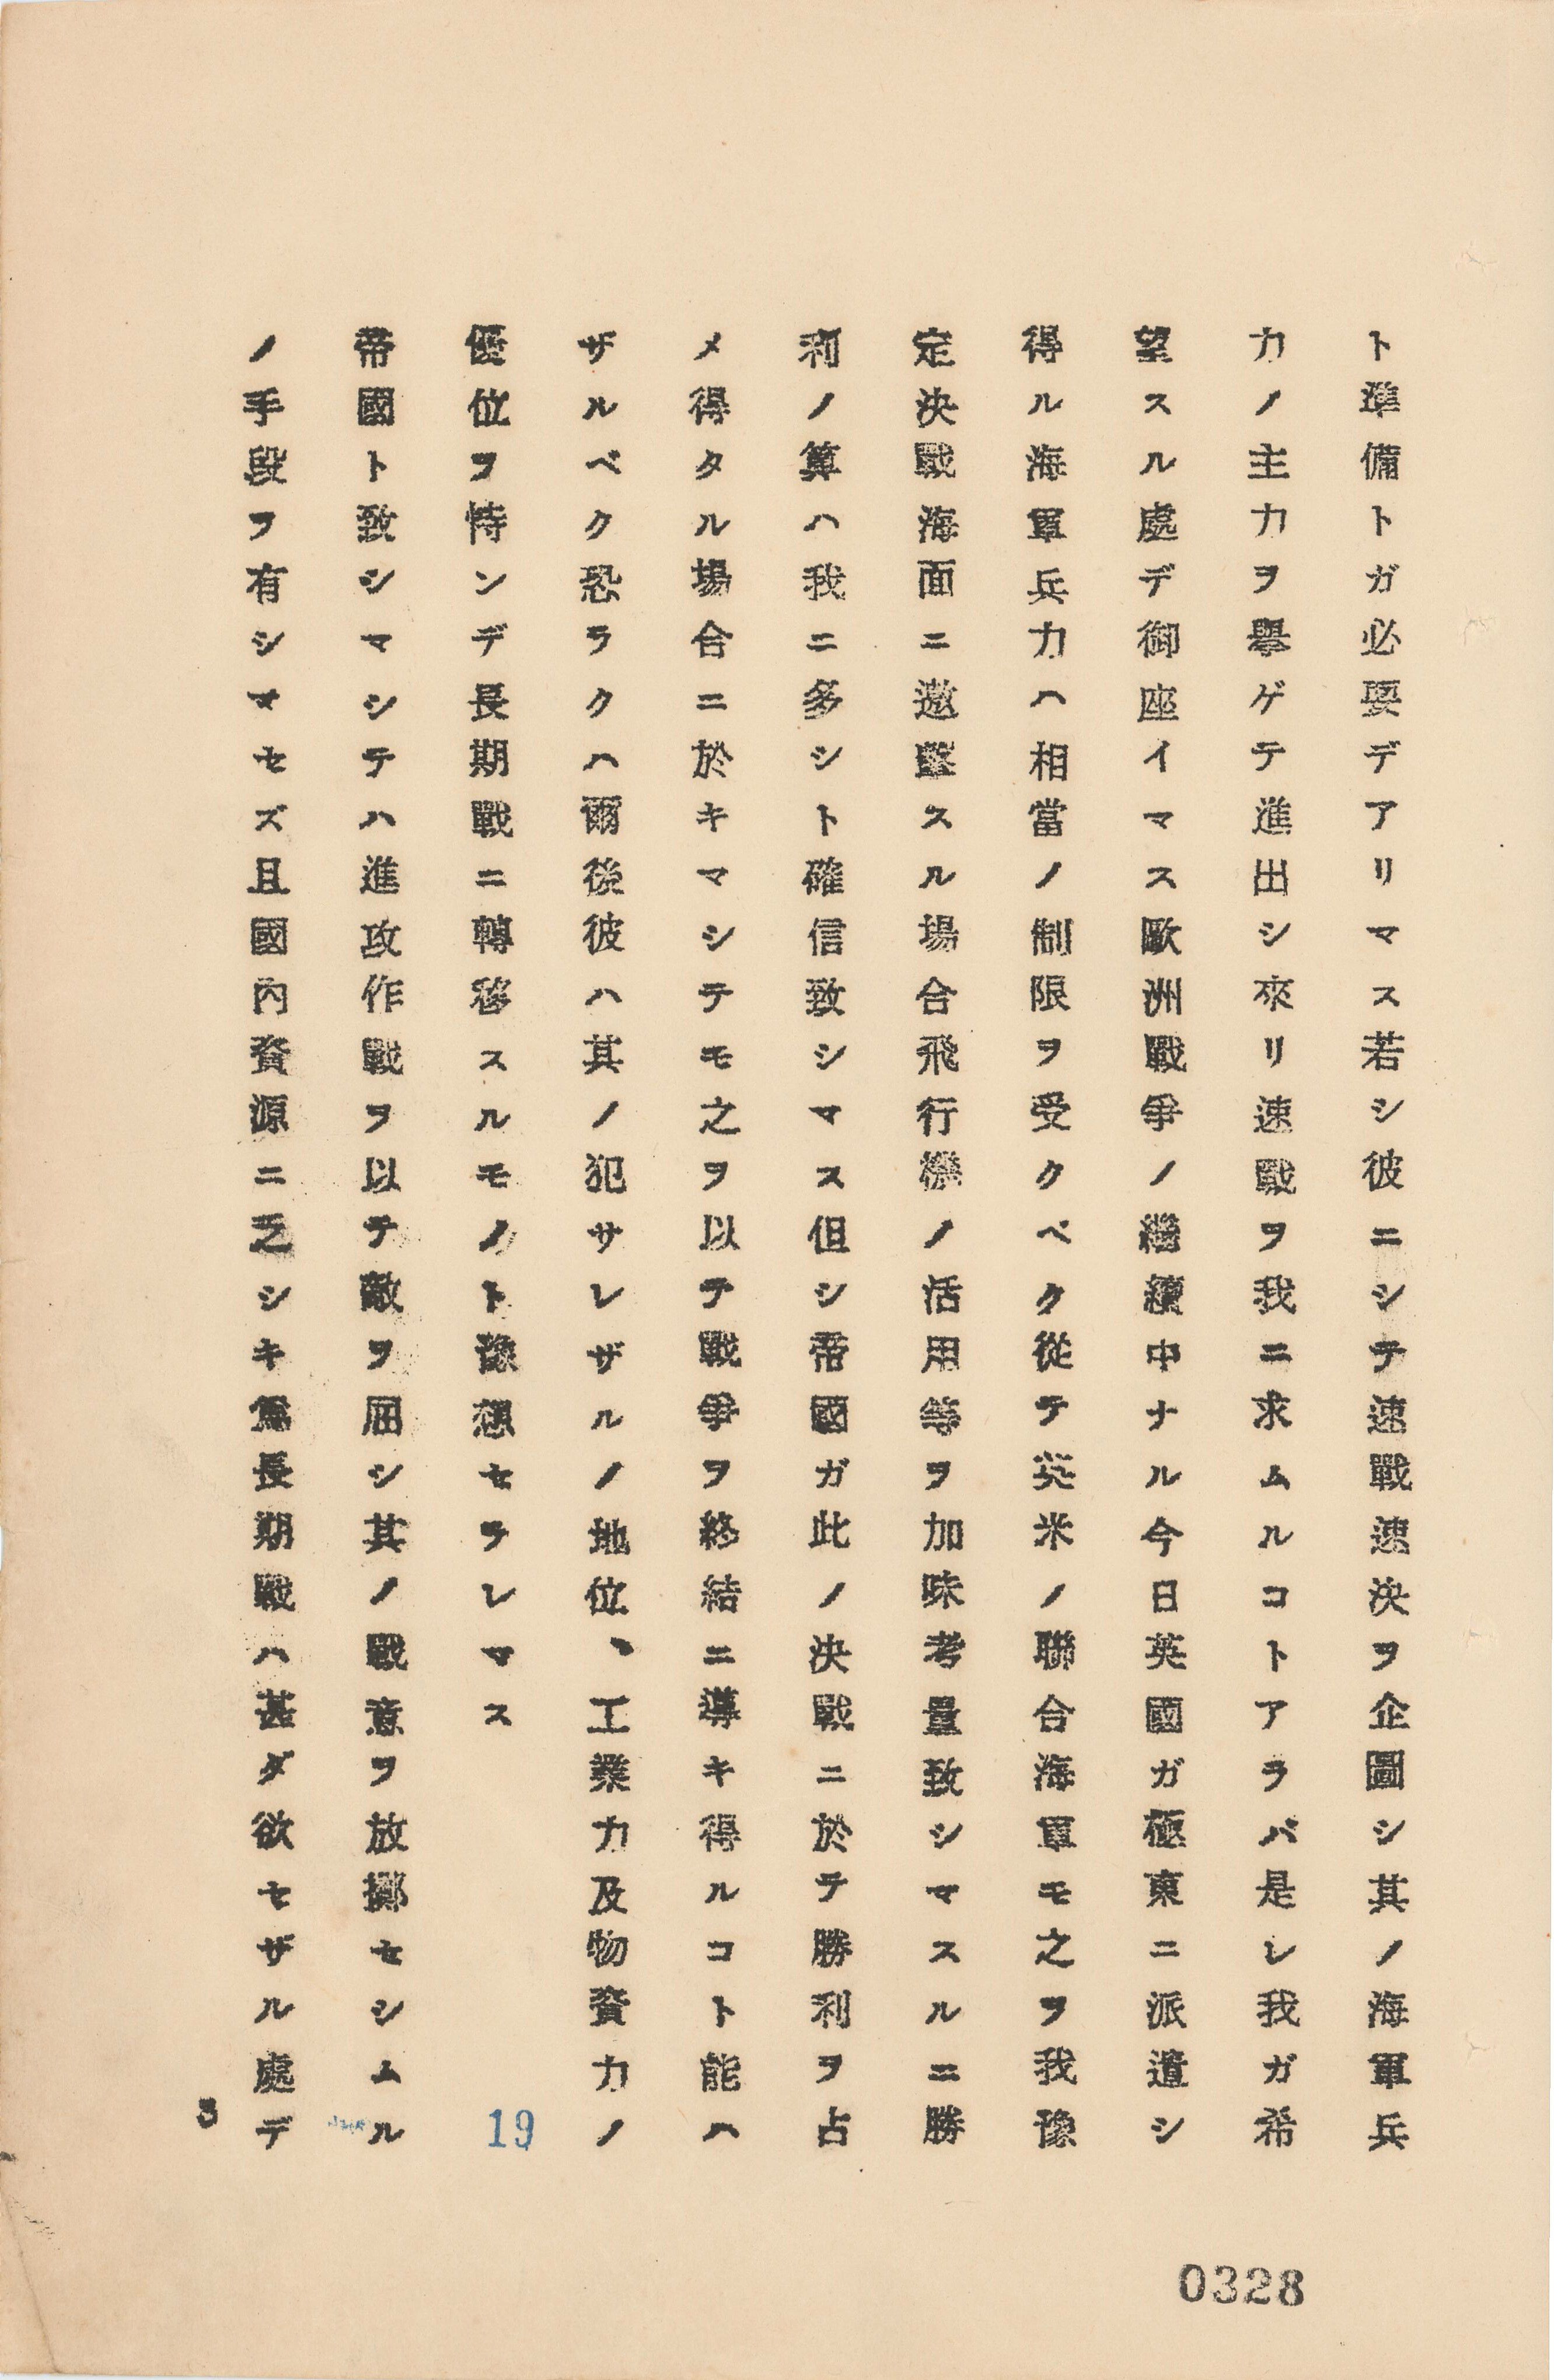 ト準備トガ必要デアリマス若シ彼ニシテ速戰速決ヲ企圖シ其ノ海軍兵
力ノ主力ヲ擧ゲテ進出シ來リ速戰ヲ我ニ求ムルコトアラバ是レ我ガ希
望スル處デ御座イマス歐洲戰爭ノ繼續中ナル今日英國ガ極東ニ派遣シ
得ル海軍兵力ハ相當ノ制限ヲ受クベク從テ英米ノ聯合海軍モ之ヲ我豫
定決戰海面ニ邀擊スル場合飛行機ノ活用等ヲ加味考量致シマスルニ勝
利ノ算ハ我ニ多シト確信致シマス但シ帝國ガ此ノ決戰ニ於テ勝利ヲ占
メ得タル場合ニ於キマシテモ之ヲ以テ戰爭ヲ終結ニ導キ得ルコト能ハ
ザルベク恐ラクハ爾後彼ハ其ノ犯サレザルノ地位、工業力及物資力ノ
優位ヲ恃ンデ長期戰ニ轉移スルモノト豫想セラレマス
帝國ト致シマシテハ進攻作戰ヲ以テ敵ヲ屈シ其ノ戰意ヲ放擲セシムル
ノ手段ヲ有シマセズ且國內資源ニ乏シキ爲長期戰ハ甚ダ欲セザル處デ
19
3
0328